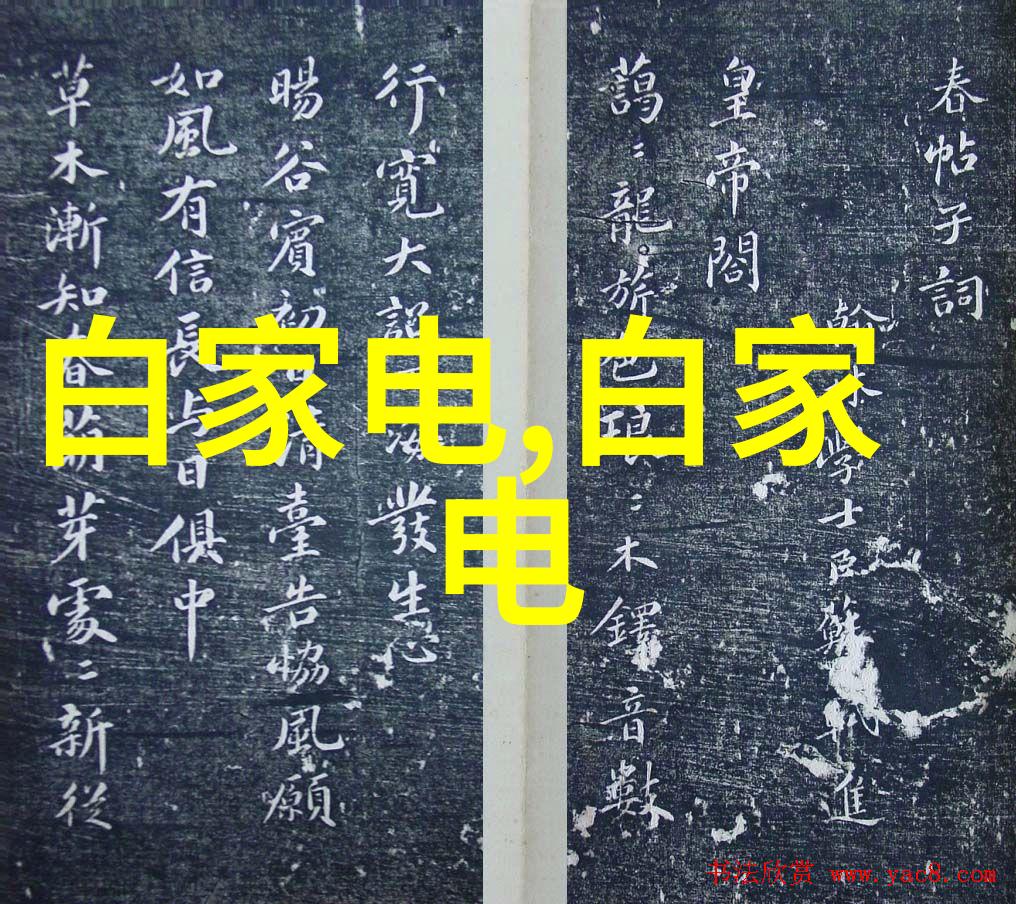 春帖子詞
翰林学士臣蘇軾進
皇帝閤
藹〻龍旂色琅〻木鐸音數
行寬大詔海發生心
暘谷賓初日清臺告協風願
如風有信長与日俱中
草木漸知春萌芽處〻新從
白家电,白家
电
书法欣赏 www.yac8.com